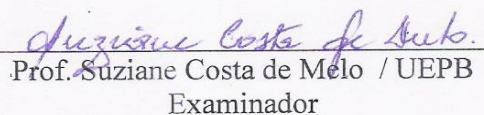 Suziane Costa de
Prof. Suziane Costa de Melo / UEPB
Examinador